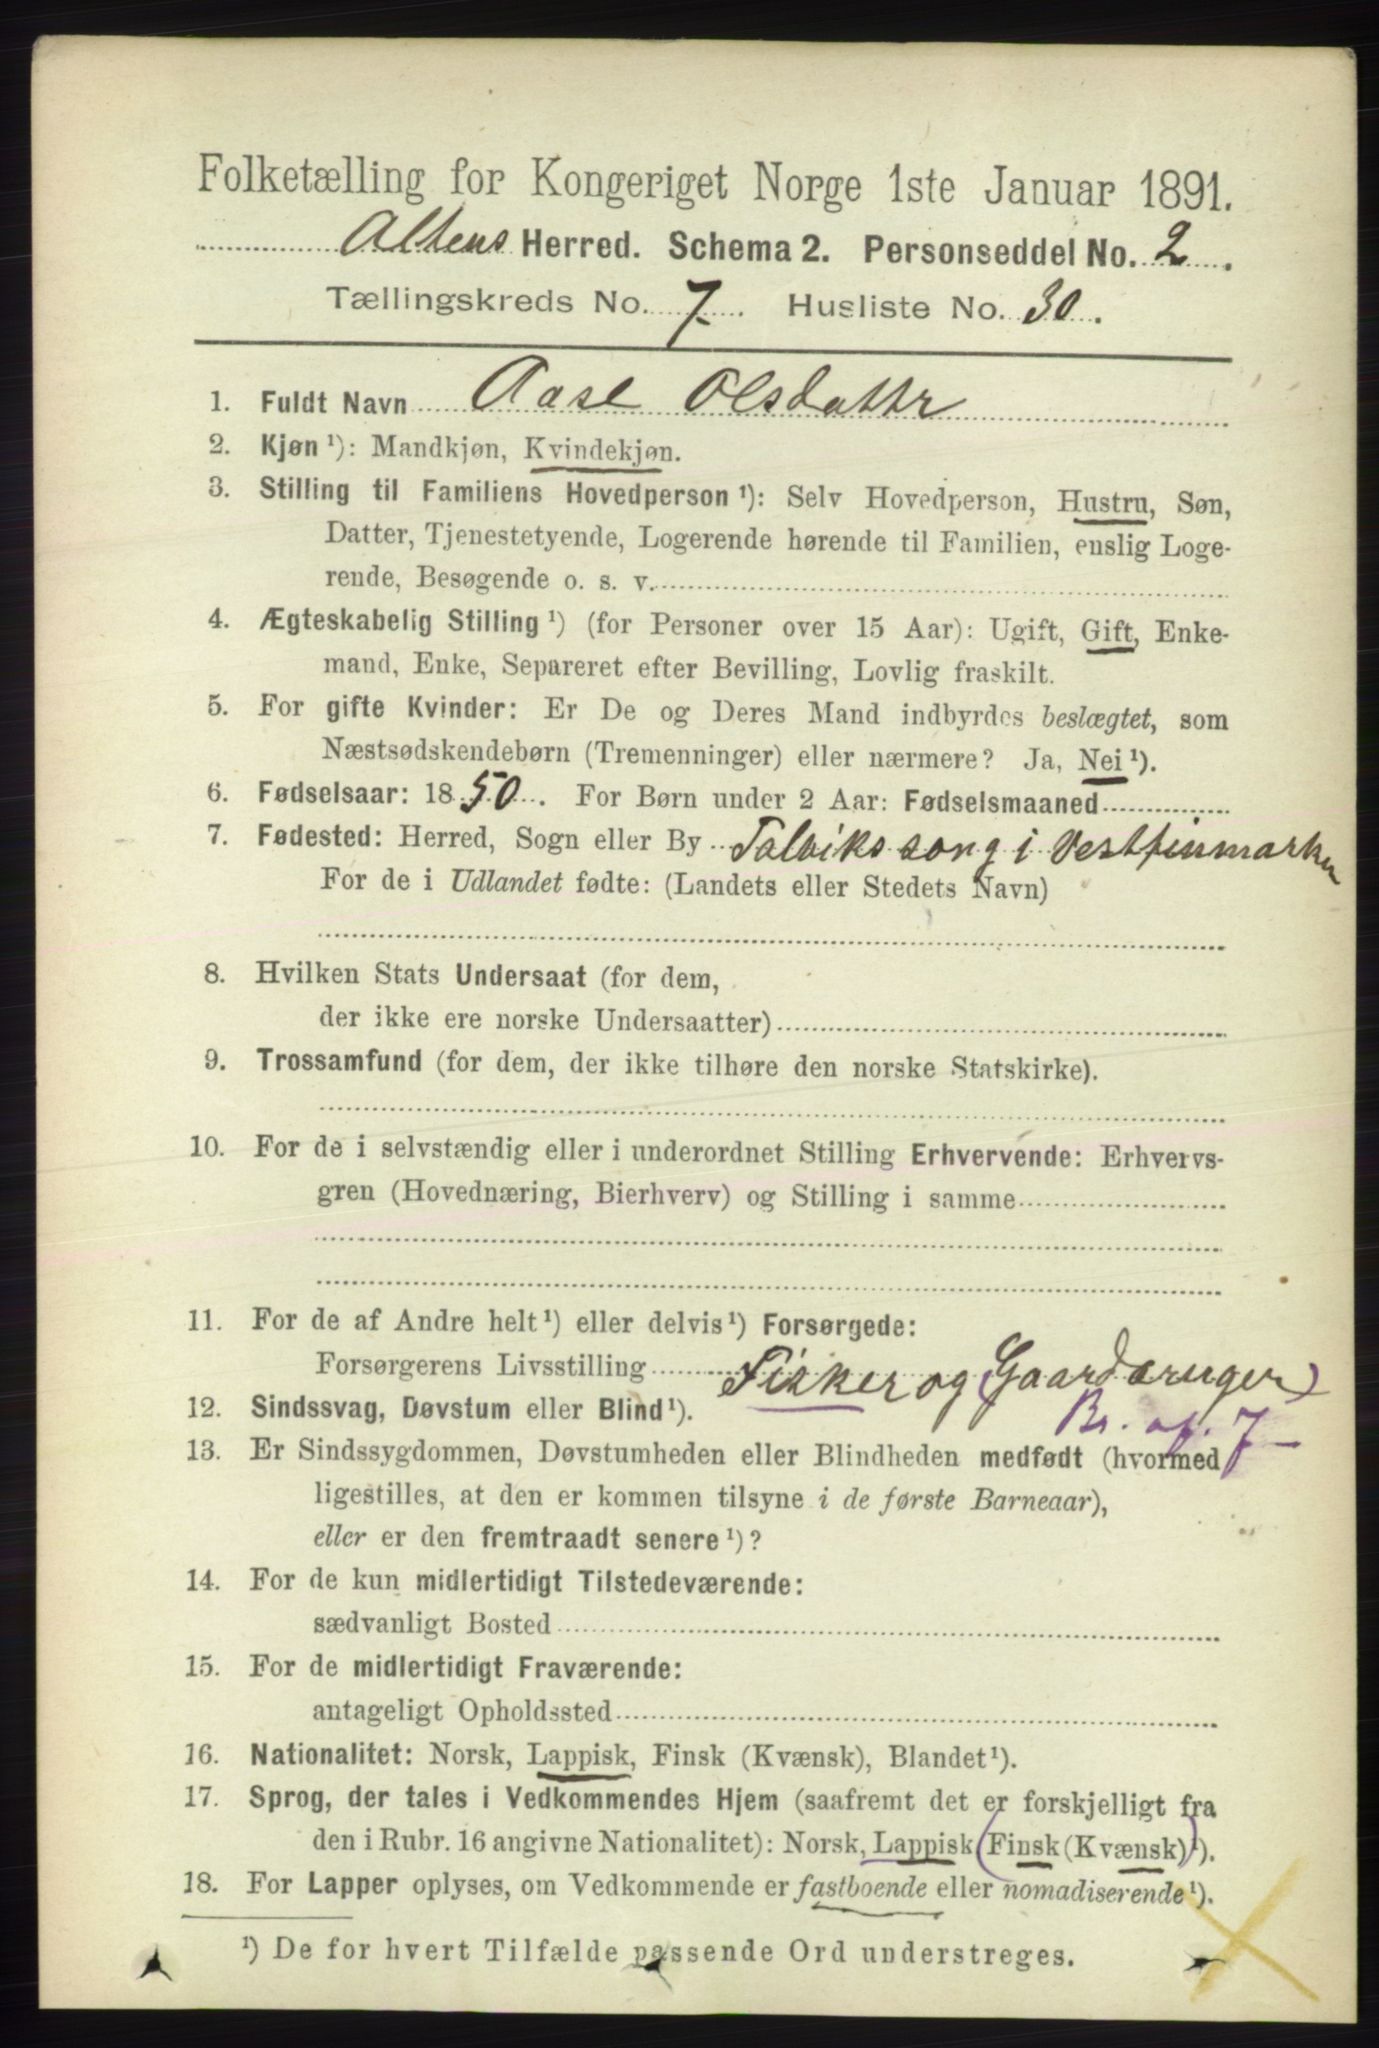 Folketælling for Kongeriget Norge 1ste Januar 1891.
Altens Herred. Schema 2. Personseddel No. 2.
Tællingskreds No. 7. Husliste No. 30.
1. Fuldt Navn Aase Olsdattr
2. Kjøn ¹): Mandkjøn, Kvindekjøn.
3. Stilling til Familiens Hovedperson ¹): Selv Hovedperson, Hustru, Søn,
Datter, Tjenestetyende, Logerende hørende til Familien, enslig Loge-
rende, Besøgende o. s. v.
4. Ægteskabelig Stilling ¹) (for Personer over 15 Aar): Ugift, Gift, Enke-
mand, Enke, Separeret efter Bevilling, Lovlig fraskilt.
5. For gifte Kvinder: Er De og Deres Mand indbyrdes beslægtet, som
Næstsødskendebørn (Tremenninger) eller nærmere? Ja, Nei ¹).
6. Fødselsaar: 1850. For Børn under 2 Aar: Fødselsmaaned
7. Fødested: Herred, Sogn eller By Talviks song i Vestfinmarken
For de i Udlandet fødte: (Landets eller Stedets Navn)
8. Hvilken Stats Undersaat (for dem,
der ikke ere norske Undersaatter)
9. Trossamfund (for dem, der ikke tilhøre den norske Statskirke).
10. For de i selvstændig eller i underordnet Stilling Erhvervende: Erhvervs-
gren (Hovednæring, Bierhverv) og Stilling i samme
11. For de af Andre helt ¹) eller delvis ¹) Forsørgede:
Forsørgerens Livsstilling Fisker og Gaardbruger
12. Sindssvag, Døvstum eller Blind ¹). Br. af. 7
13. Er Sindssygdommen, Døvstumheden eller Blindheden medfødt (hvormed
ligestilles, at den er kommen tilsyne i de første Barneaar),
eller er den fremtraadt senere ¹)?
14. For de kun midlertidigt Tilstedeværende:
sædvanligt Bosted
15. For de midlertidigt Fraværende:
antageligt Opholdssted
16. Nationalitet: Norsk, Lappisk, Finsk (Kvænsk), Blandet ¹).
17. Sprog, der tales i Vedkommendes Hjem (saafremt det er forskjelligt fra
den i Rubr. 16 angivne Nationalitet): Norsk, Lappisk (Finsk (Kvænsk) ¹).
18. For Lapper oplyses, om Vedkommende er fastboende eller nomadiserende ¹).
¹) De for hvert Tilfælde passende Ord understreges.